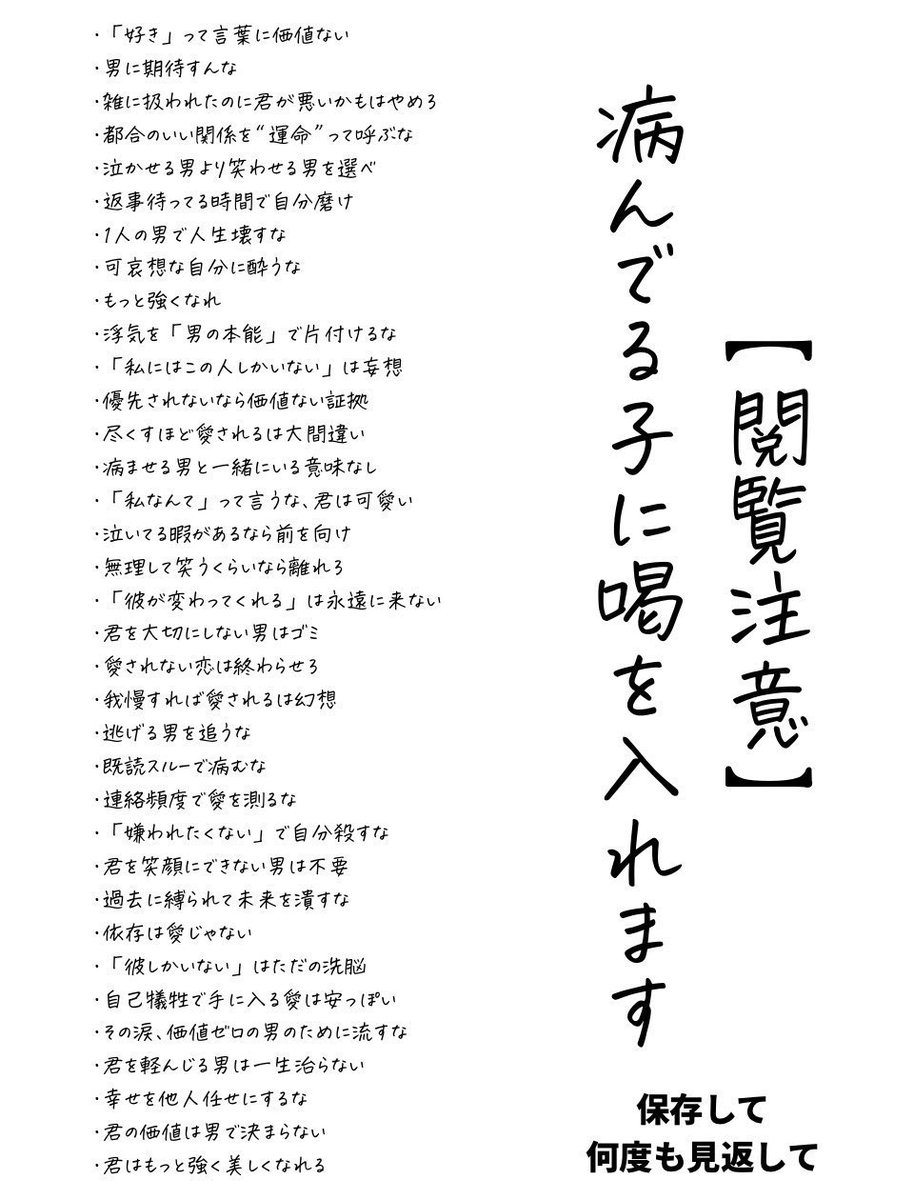 【閲覧注意】
病んでる子に喝を入れます
・「好き」って言葉に価値ない
・男に期待すんな
・雑に扱われたのに君が悪いかもはやめろ
・都合のいい関係を“運命”って呼ぶな
・泣かせる男より笑わせる男を選べ
・返事待ってる時間で自分磨け
・1人の男で人生壊すな
・可哀想な自分に酔うな
・もっと強くなれ
・浮気を「男の本能」で片付けるな
・「私にはこの人しかいない」は妄想
・優先されないなら価値ない証拠
・尽くすほど愛されるは大間違い
・病ませる男と一緒にいる意味なし
・「私なんて」って言うな、君は可愛い
・泣いてる暇があるなら前を向け
・無理して笑うくらいなら離れろ
・「彼が変わってくれる」は永遠に来ない
・君を大切にしない男はゴミ
・愛されない恋は終わらせろ
・我慢すれば愛されるは幻想
・逃げる男を追うな
・既読スルーで病むな
・連絡頻度で愛を測るな
・「嫌われたくない」で自分殺すな
・君を笑顔にできない男は不要
・過去に縛られて未来を潰すな
・依存は愛じゃない
・「彼しかいない」はただの洗脳
・自己犠牲で手に入る愛は安っぽい
・その涙、価値ゼロの男のために流すな
・君を軽んじる男は一生治らない
・幸せを他人任せにするな
・君の価値は男で決まらない
・君はもっと強く美しくなれる
保存して
何度も見返して